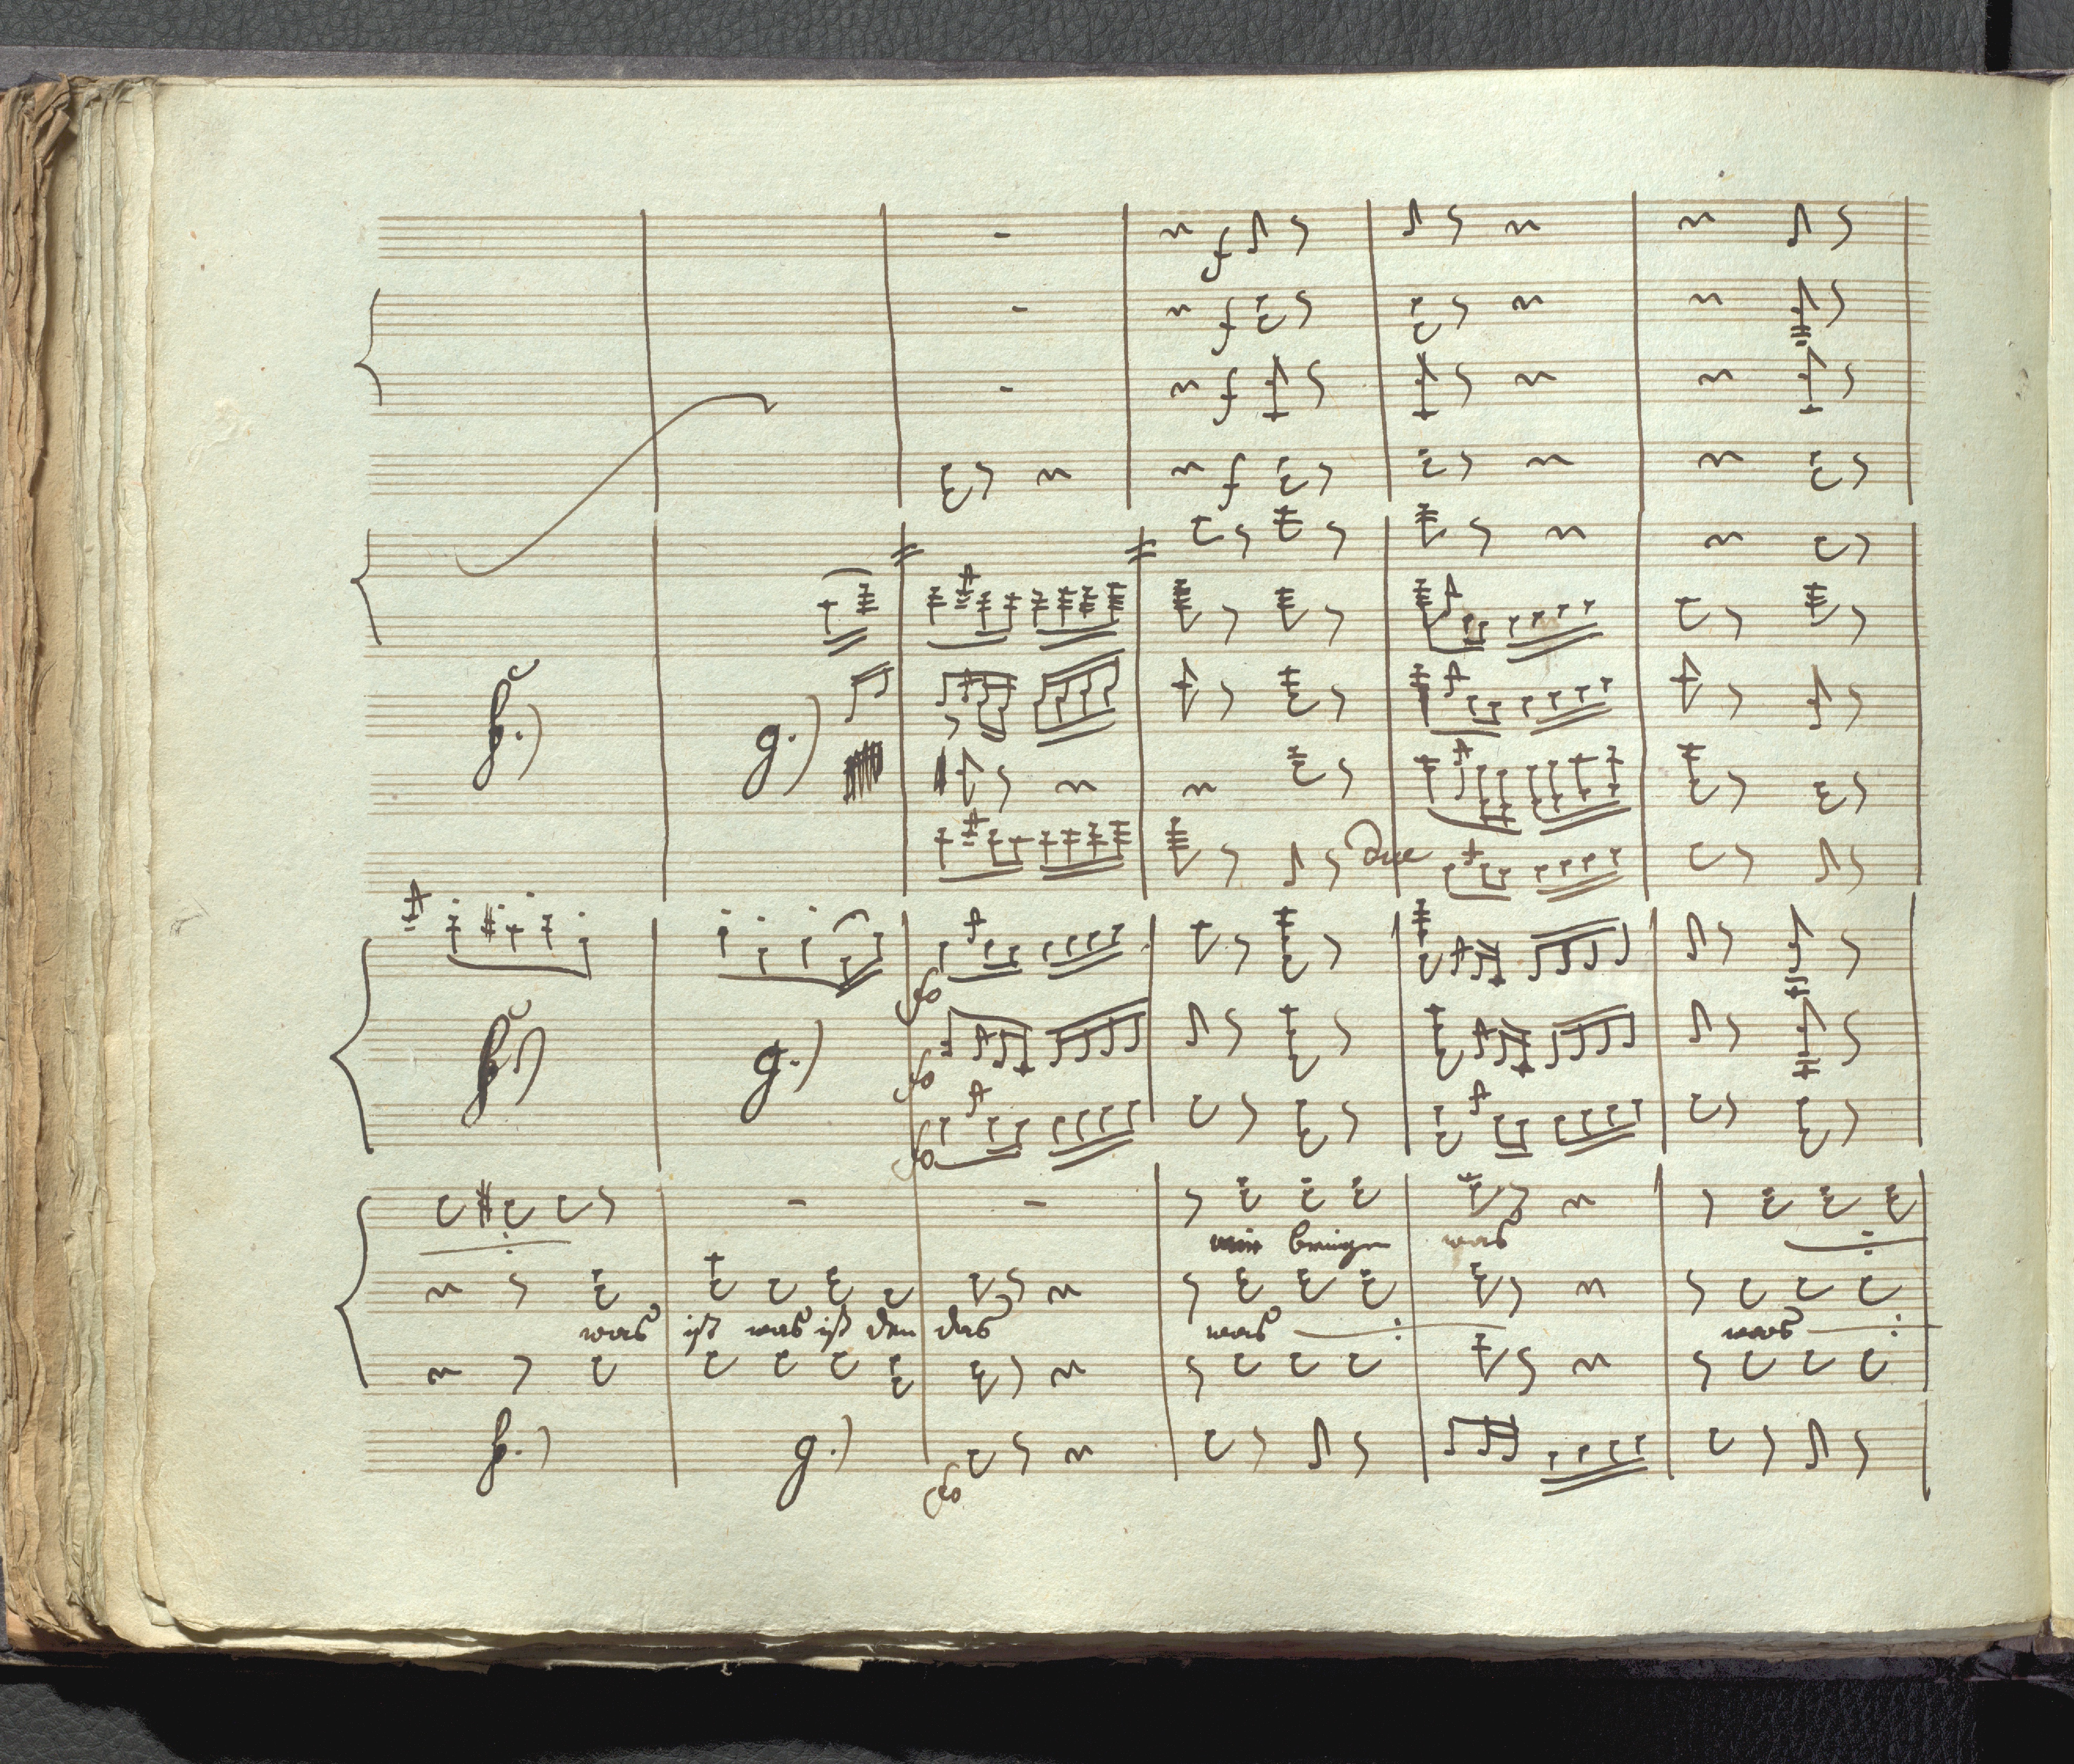 f
f
f
f
h.)
g.)
due
fo
h.)
g.)
fo
fo
mir bringen was
was ist was ist den das was was
h.)
g.)
fo